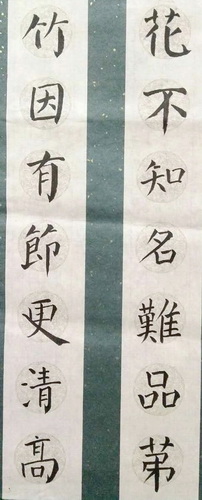 花不知名難品第
竹因有節更清高